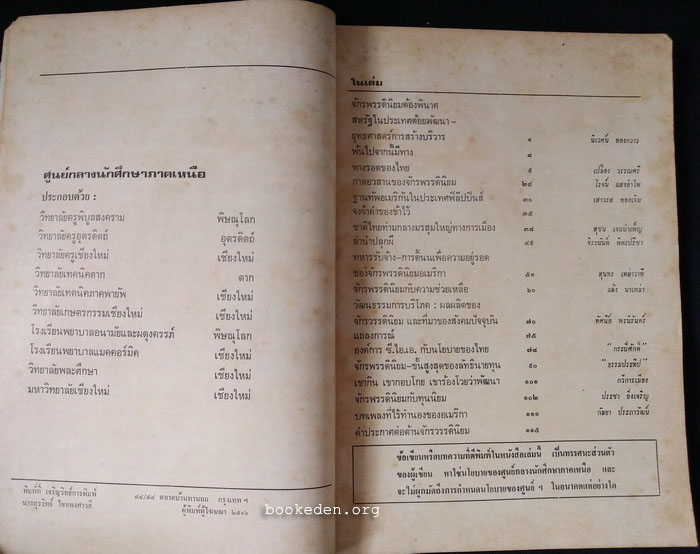 ศูนย์กลางนักศึกษาภาคเหนือ
ประกอบด้วย :
วิทยาลัยครูพิบูลสงคราม พิษณุโลก
วิทยาลัยครูอุตรดิตถ์ อุตรดิตถ์
วิทยาลัยครูเชียงใหม่ เชียงใหม่
วิทยาลัยเทคนิคตาก ตาก
วิทยาลัยเทคนิคภาคพายัพ เชียงใหม่
วิทยาลัยเกษตรกรรมเชียงใหม่ เชียงใหม่
โรงเรียนพยาบาลอนามัยและผดุงครรภ์ พิษณุโลก
โรงเรียนพยาบาลแมคคอร์มิค เชียงใหม่
วิทยาลัยพละศึกษา เชียงใหม่
มหาวิทยาลัยเชียงใหม่ เชียงใหม่
พิมพ์ที่ เจริญวิทย์การพิมพ์ ๘๔/๔๔ ตลาดบ้านพานถม กรุงเทพ ฯ
ผู้พิมพ์ผู้โฆษณา ๒๕๑๖
ในเล่ม
จักรพรรดินิยมต้องพินาศ
สหรัฐในประเทศด้อยพัฒนา –
ยุทธศาสตร์การสร้างบริวาร ๑ นิเวศน์ ทองกวาว
พ้นไปจากนี้มีทาง ๘
ทางรอดของไทย ๙ เปลื้อง วรรณศรี
กาลอวสานของจักรพรรดินิยม ๒๔ โรจน์ แสงอำไพ
ฐานทัพอเมริกันในประเทศฟิลิปปินส์ ๓๐ เสาวรส ทองเจิม
จงจำคำของข้าไว้ ๓๕
ชาติไทยท่ามกลางมรสุมใหญ่ทางการเมือง ๓๘ สุชน เจนบำเพ็ญ
ลำนำปลุกผี ๔๙ จิระนันท์ พิตรปรีชา
ทหารรับจ้าง-การดิ้นเพื่อความอยู่รอด
ของจักรพรรดินิยมอเมริกา ๕๑ สุนทร เหล่าราษี
จักรพรรดินิยมกับความช่วยเหลือ ๖๐ แล้ง นาเหล่า
วัฒนธรรมการบริโภค : ผลผลิตของ
จักรวรรดินิยม และที่มาของสังคมปัจจุบัน ๗๐ ทัศนีย์ พรนรินทร์
แถลงการณ์ ๗๕
องค์การ ซี.ไอ.เอ. กับนโยบายของไทย ๗๘ "กระบี่ศักดิ์"
จักรพรรดินิยม-ขั้นสูงสุดของลัทธินายทุน ๙๐ "ธรรมประทีป"
เขากิน เขากอบโกย เขาร้องโวยว่าพัฒนา ๑๐๑ กวีการเมือง
จักรพรรดินิยมกับทุนนิยม ๑๐๒ ประชา ยิ่งเจริญ
บทเพลงที่ไร้ทำนองของอเมริกา ๑๑๑ กัลยา ประภาวัฒน์
คำประกาศต่อต้านจักรวรรดินิยม ๑๑๕
ข้อเขียนหรือบทความที่ตีพิมพ์ในหนังสือเล่มนี้ เป็นทรรศนะส่วนตัว
ของผู้เขียน หาใช่นโยบายของศูนย์กลางนักศึกษาภาคเหนือ และ
จะไม่ผูกมัดถึงการกำหนดนโยบายของศูนย์ ฯ ในอนาคตแต่อย่างใด
bookeden.org